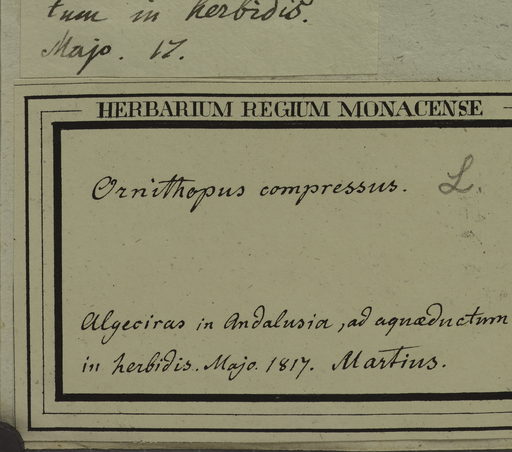 tum in herbidis.
Majo. 17.
HERBARIUM REGIUM MONACENSE
Ornithopus compressus. L.
Algeciras in Andalusia, ad aquæductum
in herbidis. Majo. 1817. Martius.